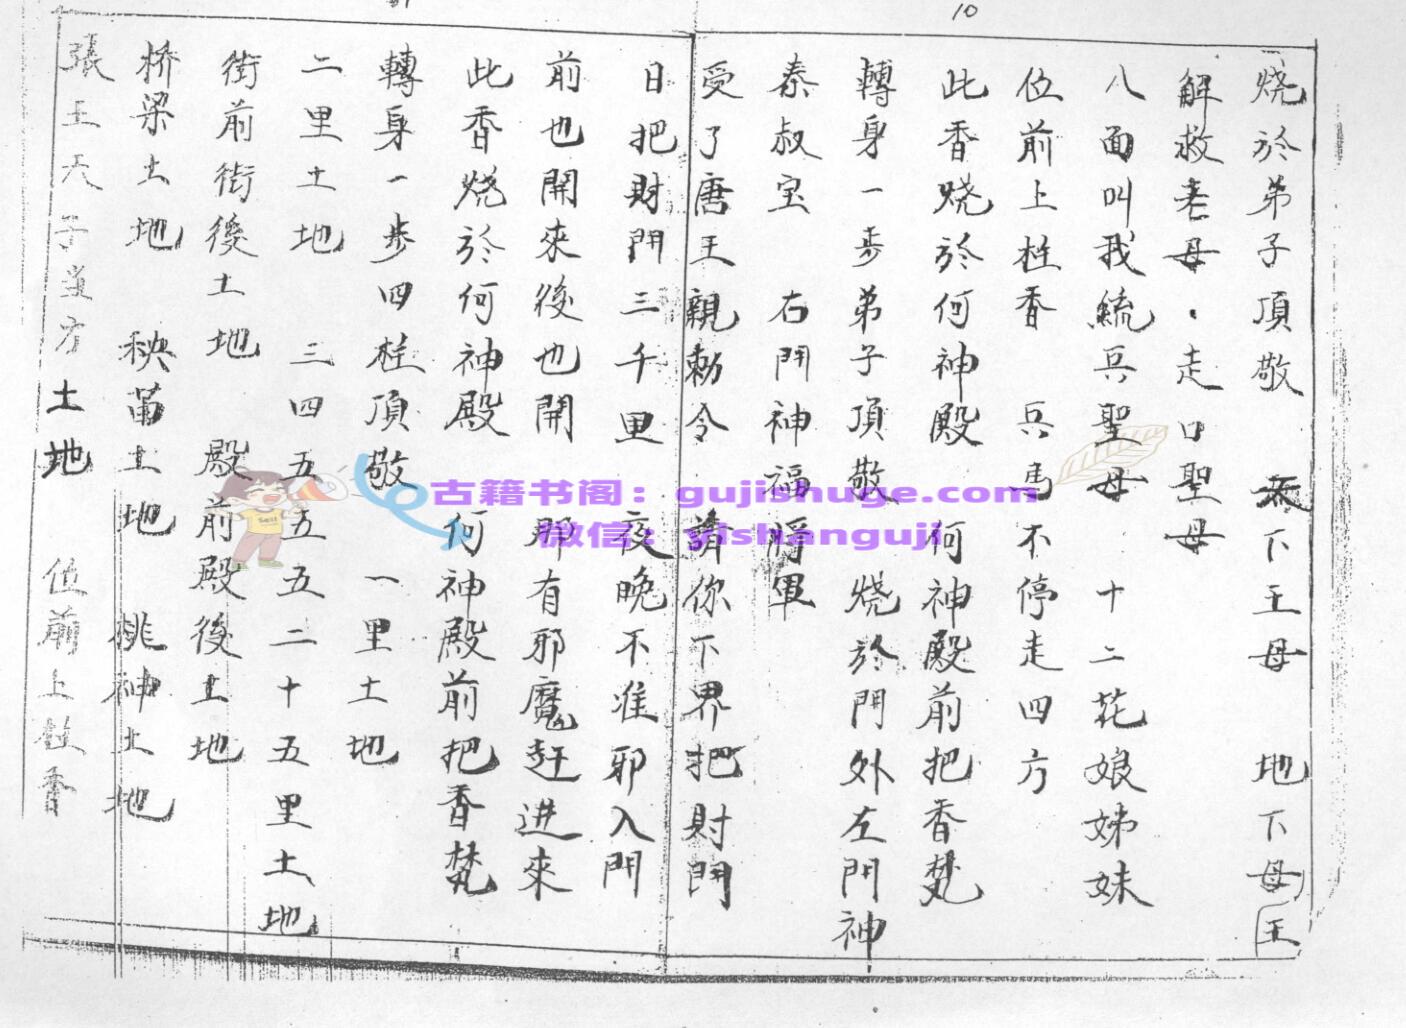 10
烧於弟子頂敬 天下王母 地下母王
解救老母·走口聖母
八面叫我統兵聖母 十二花娘姊妹
位前上柱香 兵馬不停走四方
此香烧於何神殿 何神殿前把香焚
轉身一步弟子頂敬 烧於門外左門神
秦叔宝 右門神福將軍
受了唐王親勅令 請你下界把財門
日把財門三千里 夜晚不准邪入門
前也開來後也開 那有邪魔赶进來
此香烧於何神殿 何神殿前把香焚
轉身一步四柱頂敬 一里土地
二里土地 三四五五五二十五里土地
街前街後土地 殿前殿後土地
桥梁土地 秧苗土地 桃神土地
張王天子当方土地 位前上柱香
古籍书阁：gujishuge.com
微信：yishanguji